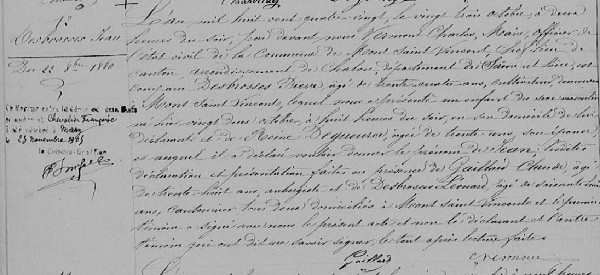 Desbrosses Jean
Du 22 8bre 1880
le 23 novembre 1965
L'an mil huit cent quatre vingt, le vingt trois octobre, à deux
heures du soir, par devant nous Charles, Maire, officier de
l'état civil de la Commune de Mont Saint Vincent, chef lieu de
canton, arrondissement de Chalon, département de Saône et Loire, est
comparu Desbrosses Pierre, âgé de trente quatre ans, cultivateur, demeurant
à Mont Saint Vincent, lequel nous a présenté un enfant du sexe masculin
né hier vingt deux octobre, à huit heures du soir, en son domicile de lui
déclarant et de Reine, âgée de trente ans, son épouse,
et auquel il a déclaré vouloir donner le prénom de Jean. Ladite
déclaration et présentation faites en présence de Gaillard Claude, âgé
de trente huit ans, aubergiste et de Desbrosses Léonard, âgé de soixante trois
ans, Cantonnier tous deux domiciliés à Mont Saint Vincent et le premier
témoin a signé avec nous le présent acte et non le déclarant et l'autre
témoin qui ont dit ne savoir signer, le tout après lecture faite.
Gaillard